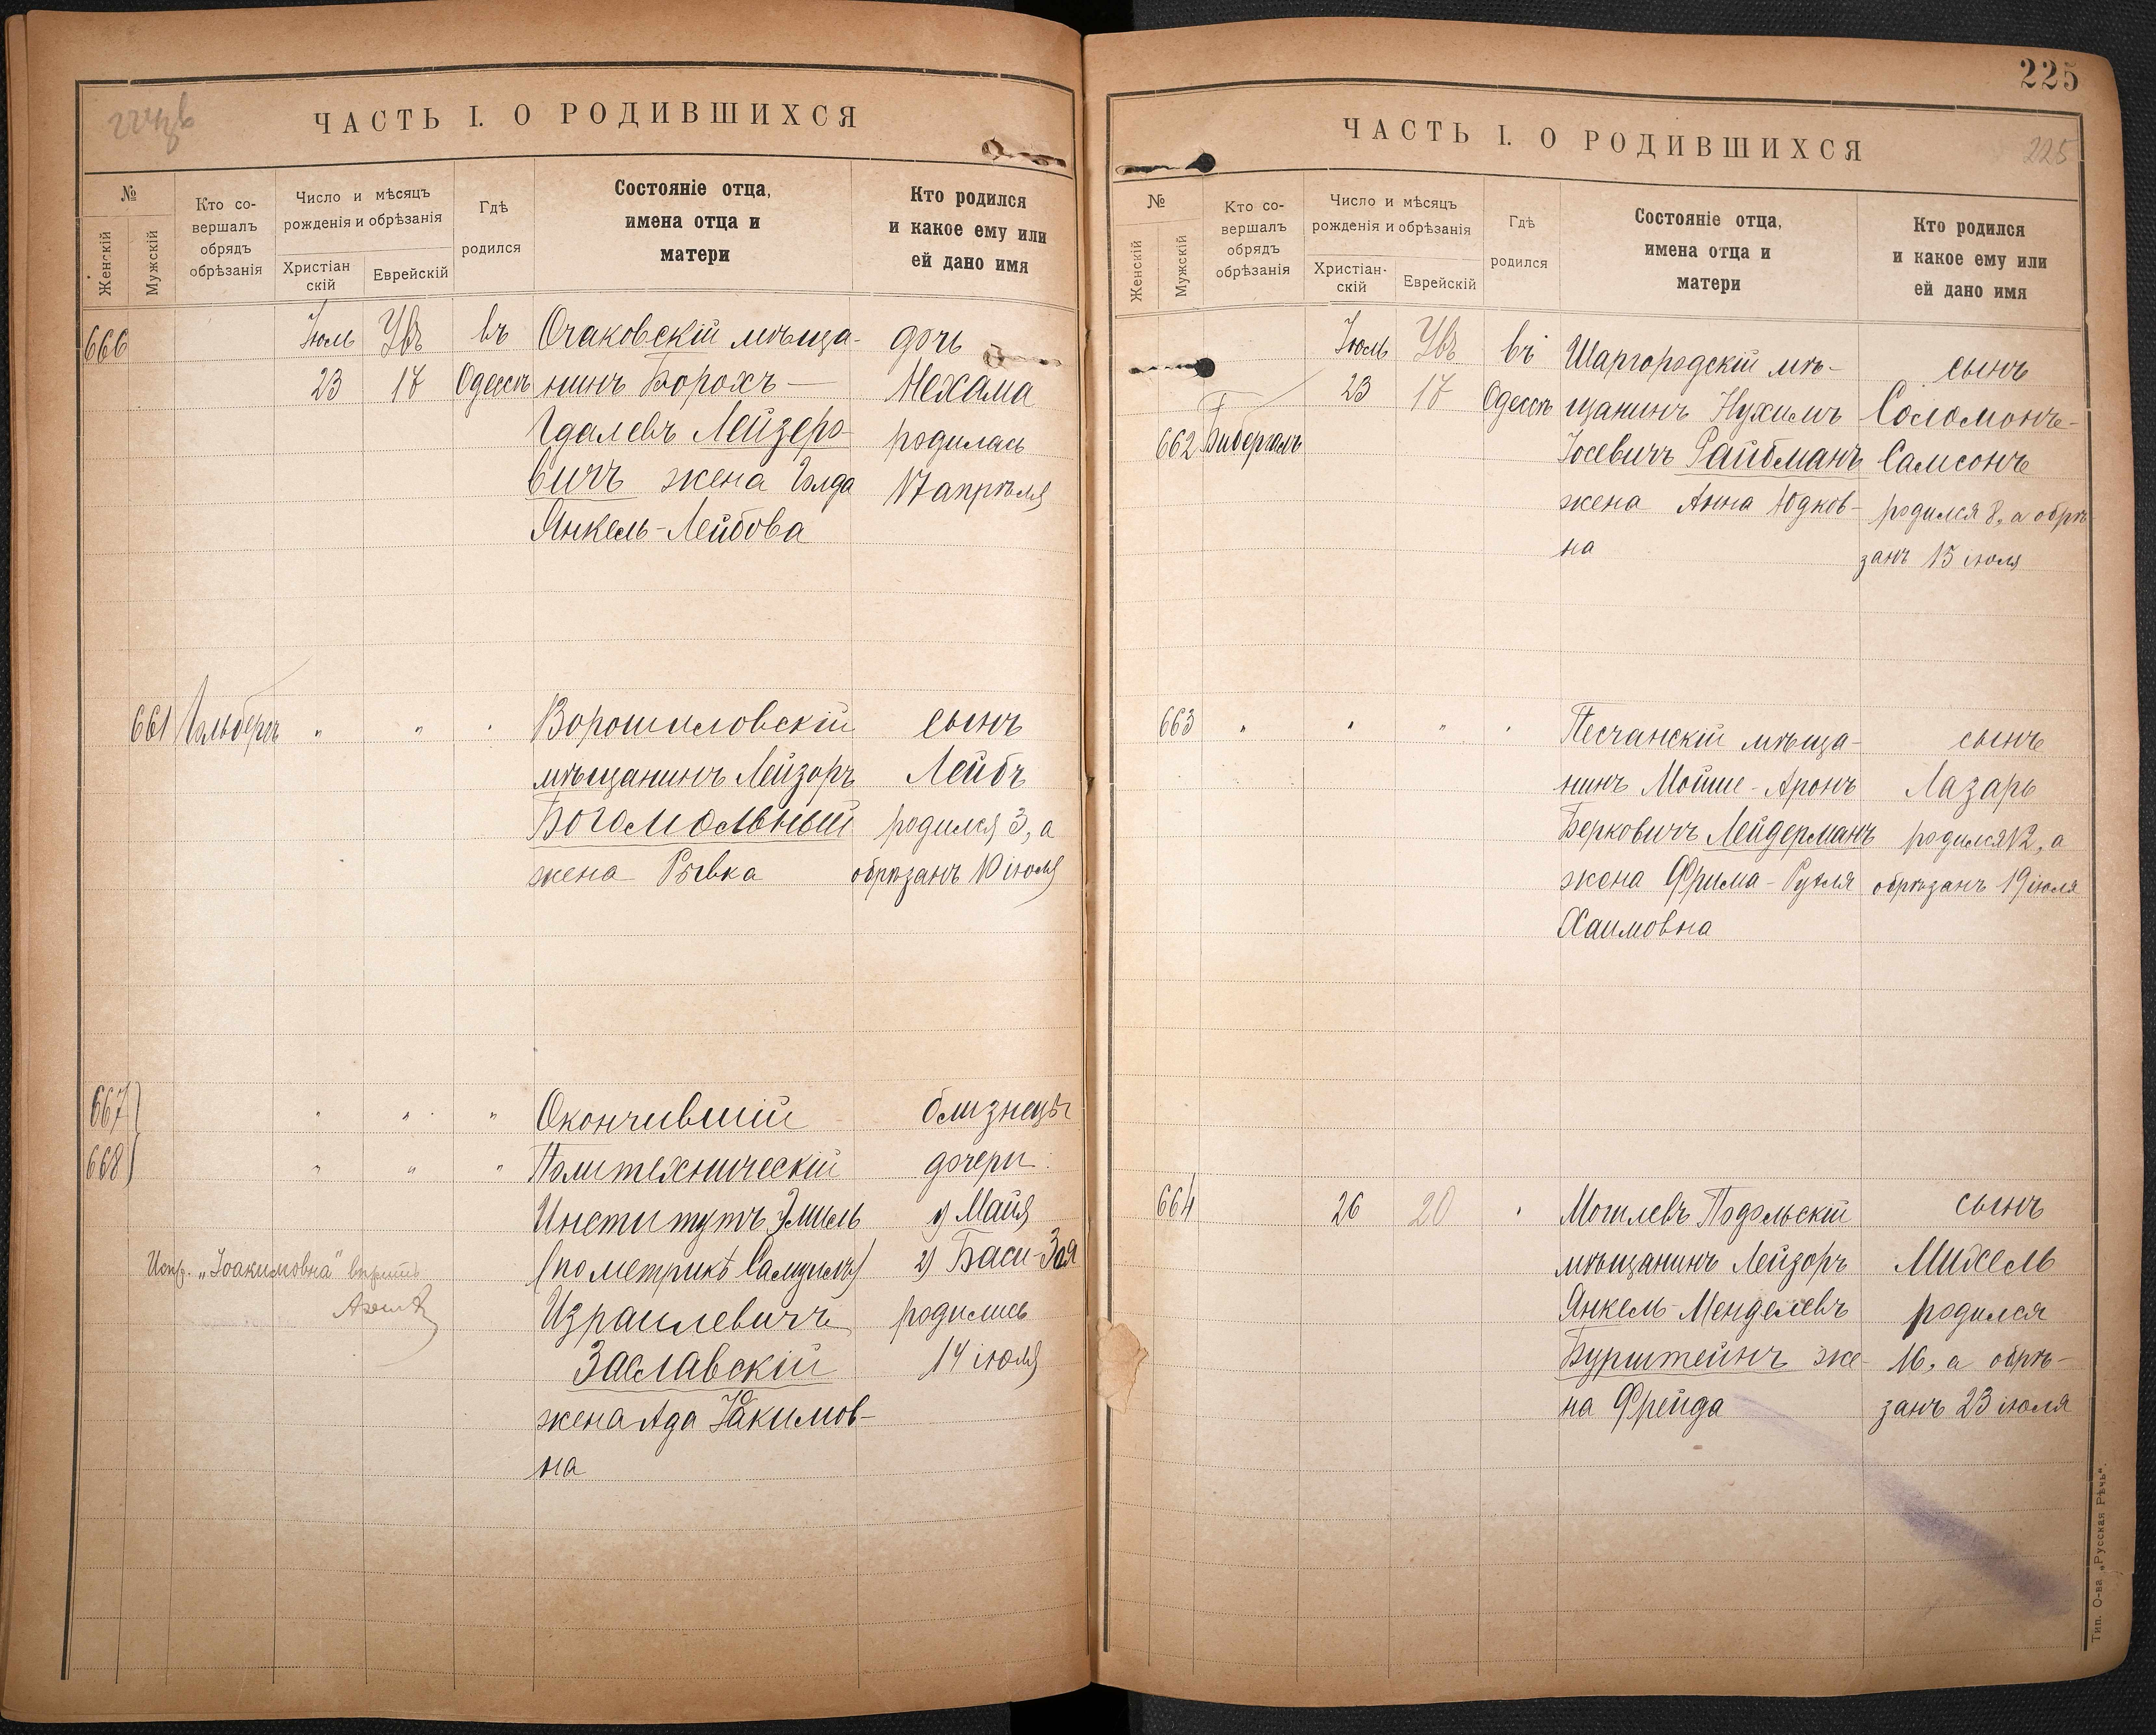 224 зв
ЧАСТЬ I. О РОДИВШИХСЯ
№
Женскій
Мужскій
Кто со-
вершалъ
обрядъ
обрѣзанія
Число и мѣсяцъ
рожденія и обрѣзанія
Христіан
скій
Еврейскій
Гдѣ
родился
Состояніе отца,
имена отца и
матери
Кто родился
и какое ему или
ей дано имя
666 Іюль въ Очаковскій мѣща- дочь
23 17 Одессѣ нинъ Борохъ — Нехама
Гдалевъ Лейзеро- родилась
вичъ жена Голда 17 апрѣля
Янкель-Лейбова
661 Гольбергъ " " " Ворошиловскій сынъ
мѣщанинъ Лейзоръ Лейбъ
Богомольный родился 3, а
жена Ривка обрѣзанъ 10 іюля
667 " " " Окончившій близнецы
668 " " " Политехническій дочери:
Институтъ Эмиль 1) Майя
Испр. „Іоакимовна" вѣрить (по метрикѣ Самуилъ) 2) Баси-Зоя
Израилевичъ родились
Заславскій 14 іюля
жена Ада Іоакимов-
на
225
ЧАСТЬ I. О РОДИВШИХСЯ
225
№
Женскій
Мужскій
Кто со-
вершалъ
обрядъ
обрѣзанія
Число и мѣсяцъ
рожденія и обрѣзанія
Христіан-
скій
Еврейскій
Гдѣ
родился
Состояніе отца,
имена отца и
матери
Кто родился
и какое ему или
ей дано имя
Іюль въ Шаргородскій мѣ- сынъ
23 17 Одессѣ щанинъ Нухимъ Соломонъ-
662 Бибергалъ Іосевичъ Райбманъ Самсонъ
жена Анна Юдков- родился 8, а обрѣ-
на занъ 15 іюля
663 " " " " Песчанскій мѣща- сынъ
нинъ Мойше-Аронъ Лазарь
Берковичъ Лейдерманъ родился 12, а
жена Фрима-Рухля обрѣзанъ 19 іюля
Хаимовна
664 26 20 " Могилевъ Подольскій сынъ
мѣщанинъ Лейзоръ Михель
Янкель-Менделевъ родился
Бурштейнъ же- 16, а обрѣ-
на Фрейда занъ 23 іюля
Тип. О-ва „Русская Рѣчь“